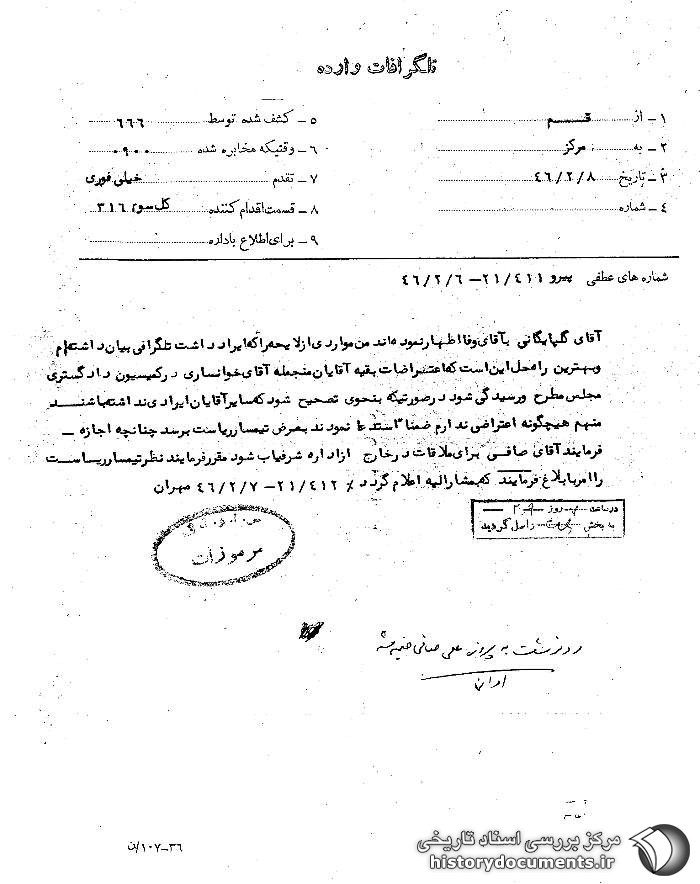 تلگرافات وارده
۱ - از قــم
۲ - به : مرکز
۳ - تاریخ ۴۶/۲/۸
۴ - شماره
۵ - کشف شده توسط ۶۶۶
۶ - وقتیکه مخابره شده ۰۹۰۰
۷ - تقدم خیلی فوری
۸ - قسمت اقدام کننده کل سوم ۳۱۶
۹ - برای اطلاع باداره
شماره های عطفی پیرو ۲۱/۴۱۱ - ۴۶/۲/۶
آقای گلپایگانی بآقای وفا اظهار نموده اند من مواردی از لایحه را که ایراد داشت تلگرافی بیان داشته ام
وبهترین راه حل این است که اعتراضات بقیه آقایان منجمله آقای خوانساری در کمیسیون دادگستری
مجلس مطرح ورسیدگی شود در صورتیکه بنحوی تصحیح شود که سایر آقایان ایرادی نداشته باشند
منهم هیچگونه اعتراضی ندارم ضمنا استدعا نمودند بعرض تیمسار ریاست برسد چنانچه اجازه -
فرمایند آقای صافی برای ملاقات در خارج از اداره شرفیاب شود مقرر فرمایند نظر تیمسار ریاست
را امر بابلاغ فرمایند که بمشارالیه اعلام گردد ٪ ۲۱/۴۱۲ - ۴۶/۲/۷ مهران
در ساعت روز
به بخش واصل گردید
مرموزات
رونوشت به پرونده علی صافی ضمیمه شد
۳۶-۱۰۷/ن
مرکز بررسی اسناد تاریخی
historydocuments.ir